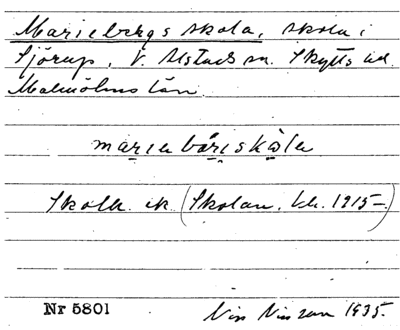 Mariebergs skola, skola i
Sjörup, V. Alstads sn. Skytts hd.
Malmöhus län
marieb&aring;riskåla
Skolk. ik. (Skolan. bl. 1915-)
Nr 5801 Nils Nilsson 1935.